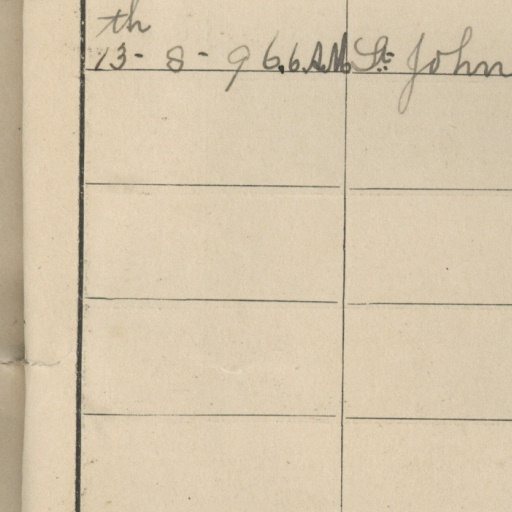 th
13 - 8 - 96, 6 A.M. St. John